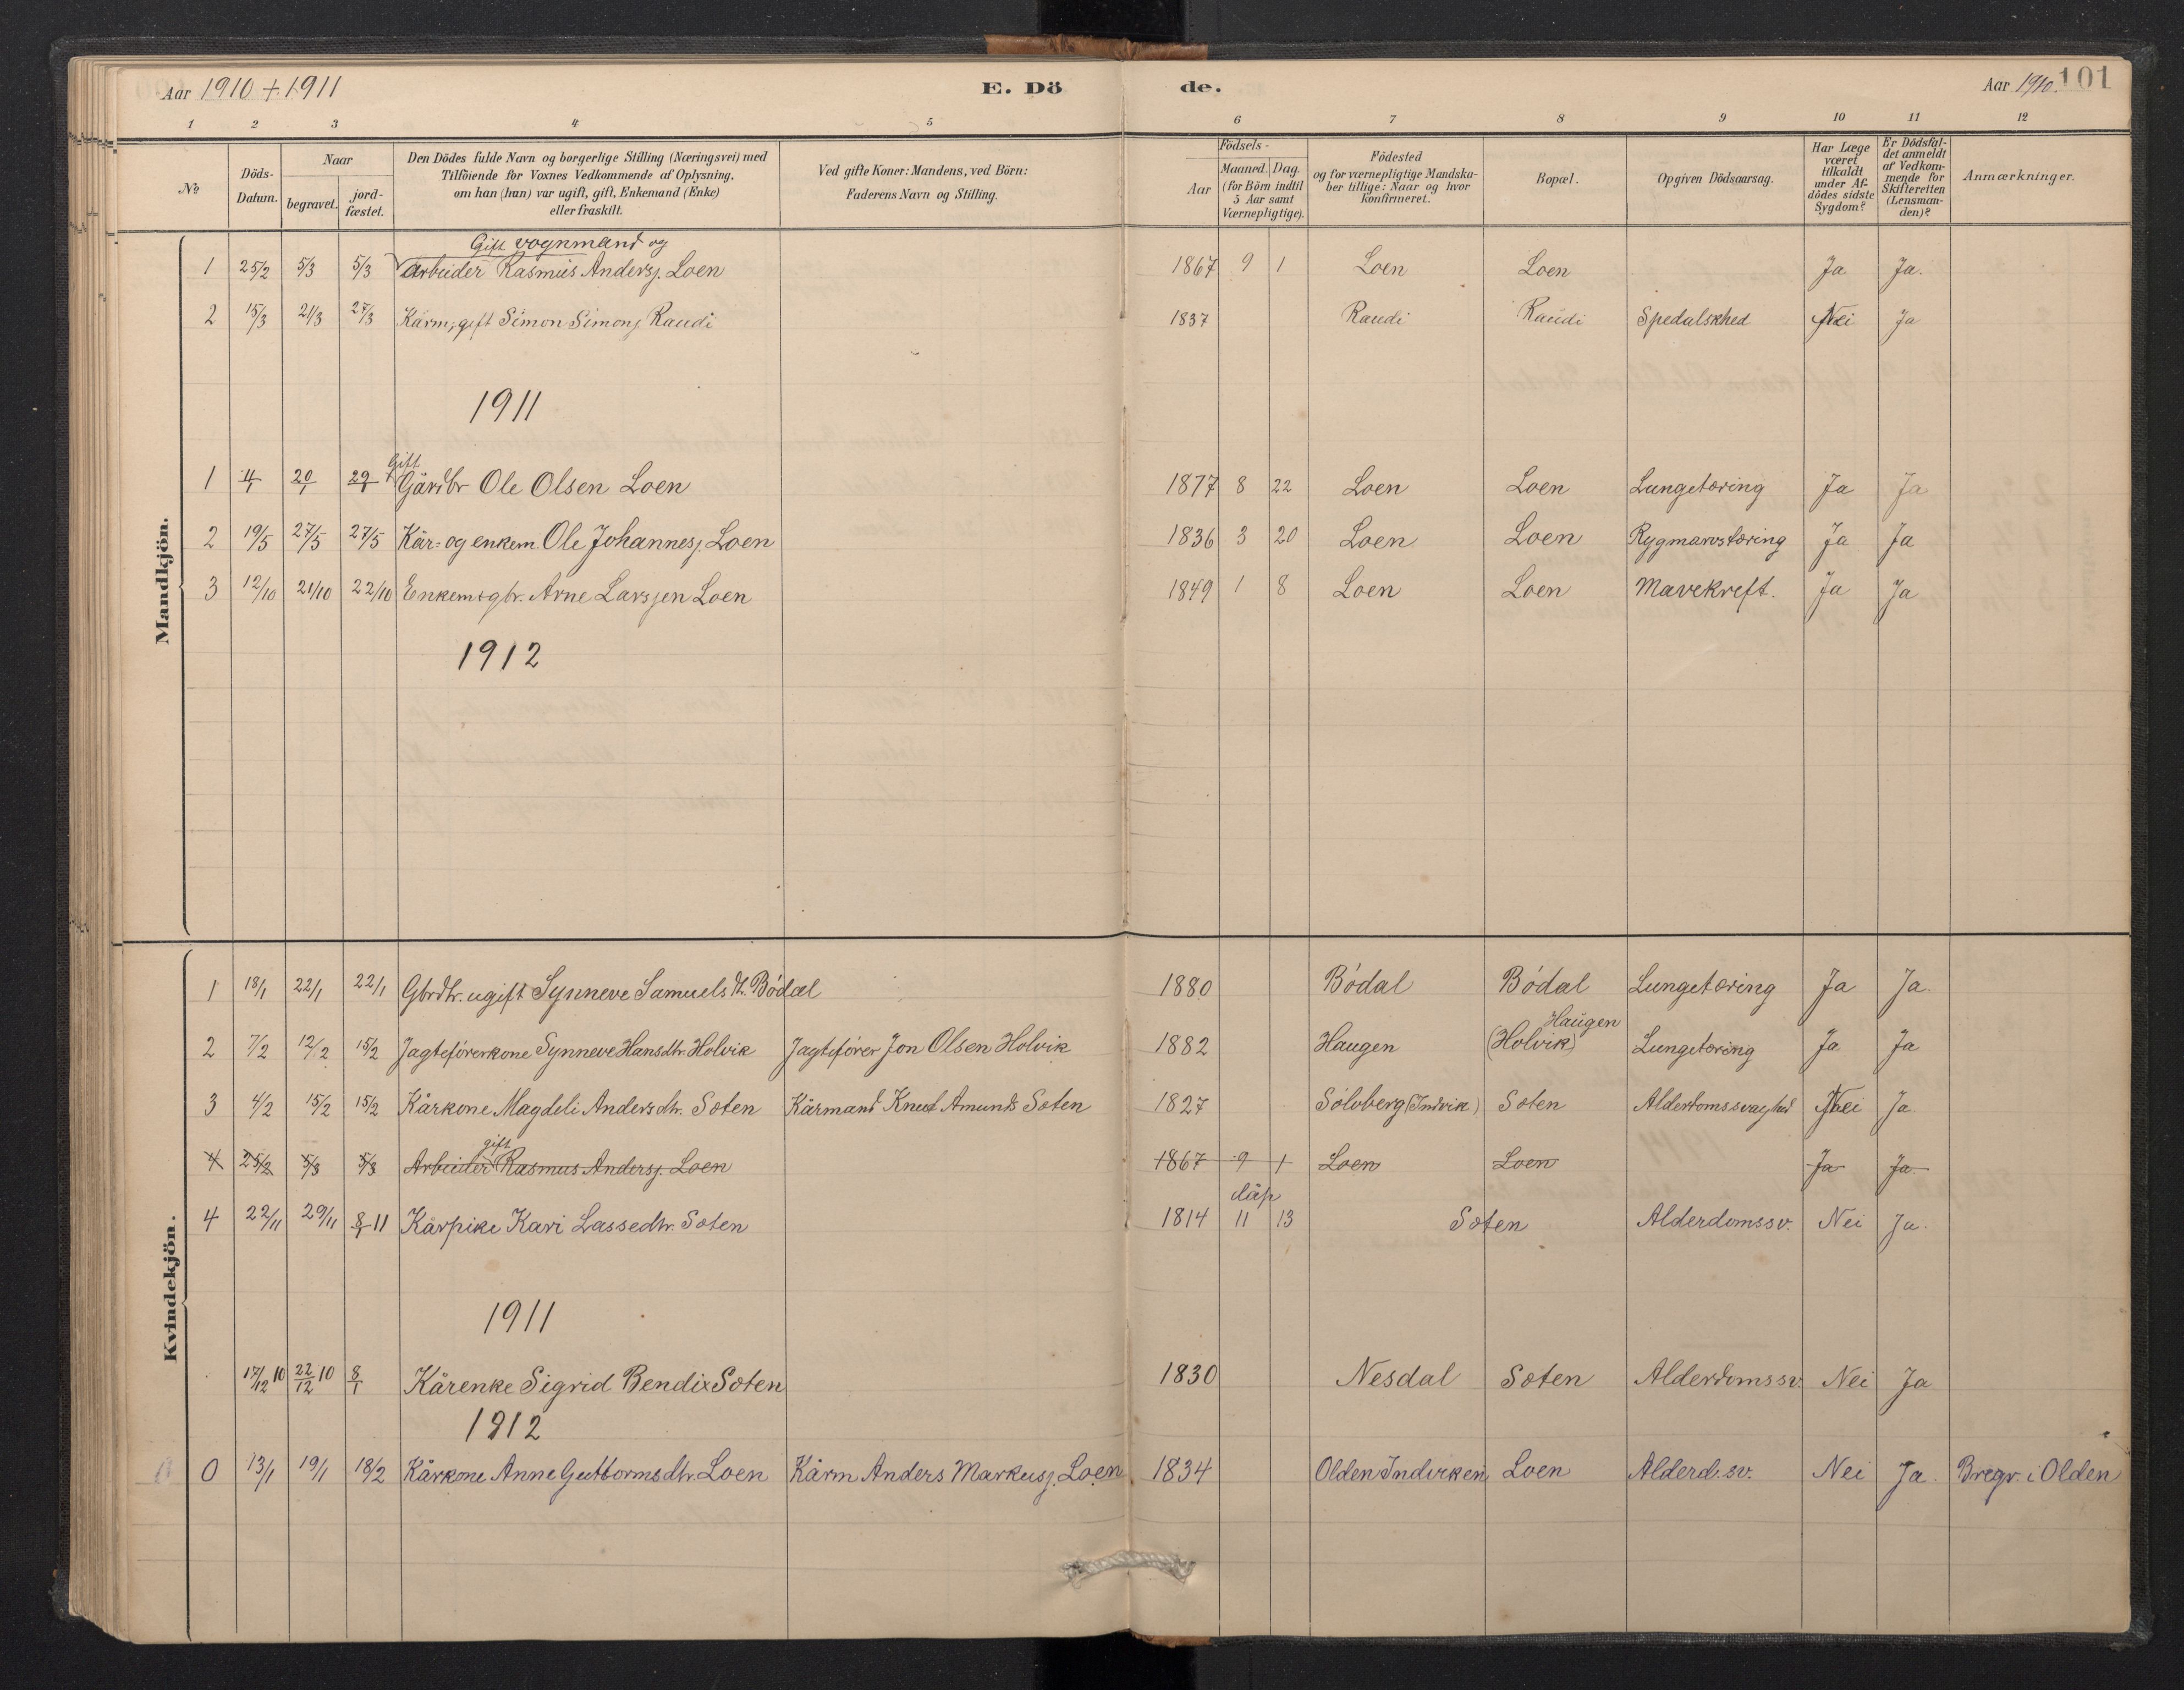 Aar 1910 + 1911 E. Dö de. Aar 1910. 101
1 2 3 4 5 6 7 8 9 10 11 12
№
Döds-Datum.
Naar
begravet.
jord-fæstet.
Den Dödes fulde Navn og borgerlige Stilling (Næringsvei) med
Tilföiende for Voxnes Vedkommende af Oplysning,
om han (hun) var ugift, gift, Enkemand (Enke)
eller fraskilt.
Ved gifte Koner: Mandens, ved Börn:
Faderens Navn og Stilling.
Födsels-
Aar
Maaned. Dag.
(for Börn indtil
5 Aar samt
Værnepligtige).
Födested
og for værnepligtige Mandska-
ber tillige: Naar og hvor
konfirmeret.
Bopæl.
Opgiven Dödsaarsag.
Har Læge
været
tilkaldt
under Af-
dödes sidste
Sygdom?
Er Dödsfal-
det anmeldt
af Vedkom-
mende for
Skifteretten
(Lensman-
den)?
Anmærkninger.
Mandkjön.
Gift vognmand og
1 25/2 5/3 5/3 Arbeider Rasmus Andersj. Loen 1867 9 1 Loen Loen Ja Ja.
2 15/3 21/3 27/3 Kårm, gift Simon Simonj Raudi 1837 Raudi Raudi Spedalskhed Nei Ja
1911
Gift
1 4/1 20/1 29/1 Gårdbr Ole Olsen Loen 1877 8 22 Loen Loen Lungetæring Ja Ja
2 19/5 27/5 27/5 Kår- og enkem. Ole Johannesj. Loen 1836 3 20 Loen Loen Rygmarvstæring Ja Ja
3 12/10 21/10 22/10 Enkem+gbr. Arne Larsjen Loen 1849 1 8 Loen Loen Mavekreft. Ja Ja
1912
Kvindekjön.
1 18/1 22/1 22/1 Gbrdtr. ugift Synneve Samuelsdt. Bödal 1880 Bödal Bödal Lungetæring Ja Ja.
Haugen
2 7/2 12/2 15/2 Jagteförerkone Synneve Hansdtr. Holvik Jagtefører Jon Olsen Holvik 1882 Haugen (Holvik) Lungetæring Ja Ja
3 4/2 15/2 15/2 Kårkone Magdeli Andersdtr. Sæten Kårmand Knut Amunds Sæten 1827 Sölvberg (Indvik) Sæten Alderdomssvaghed Nei Ja
gift
4 25/2 5/3 5/3 Arbeider Rasmus Andersj. Loen 1867 9 1 Loen Loen Ja Ja
dåp
4 22/11 29/11 8/1 11 Kårpike Kari Lassedtr. Sæten 1814 11 13 Sæten Alderdomssv. Nei Ja.
1911
17/12 10 22/12 10 8/1 Kårenke Sigrid Bendix Sæten 1830 Nesdal Sæten Alderdomssv. Nei Ja
1912
0 13/1 19/1 18/2 Kårkone Anne Guttormsdtr. Loen Kårm Anders Markusj. Loen 1834 Olden Indviken Loen Alderd.sv. Nei Ja Bregr. i Olden